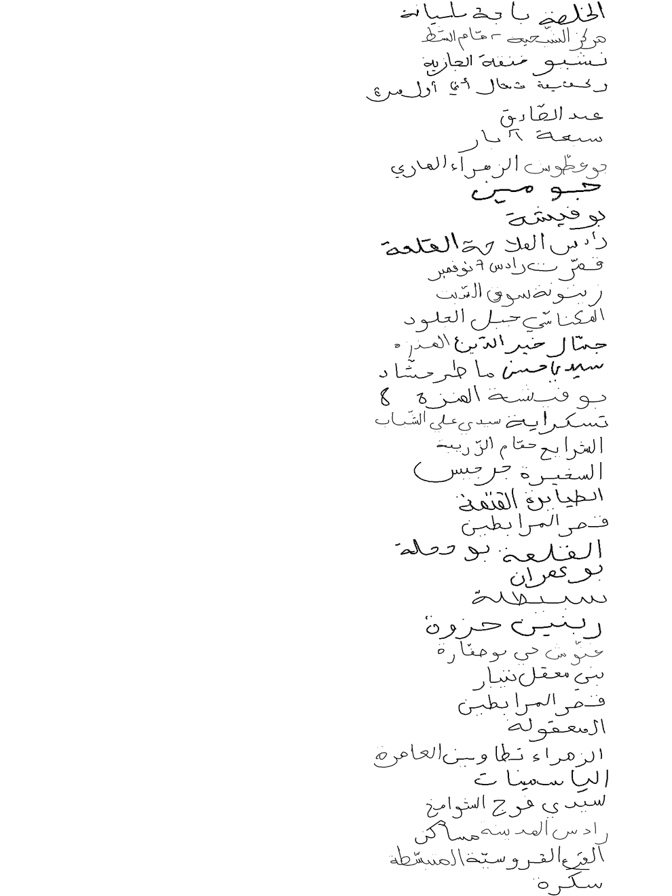 الخليفة باجة مليانة
مركز الشيحية - حمّام الشط
نشيو منقة الجازية
شمال أول
عبد الصّادق
سبعة آبار
بوعطّوش الزهراء الهاري
جبو مين
بو فيشة
رادس الملاحة القلعة
قمّرت رادس 7 نوفمبر
زيتونة سوق السّبت
المكناسي جبل الجلود
جمّال خير الدّين المنزه
سيدي حسن ماطر حشّاد
بو فيشة المنزه 8
تسكراية سيدي علي الشّباب
الشرايع حمّام الزّريبة
السغيرة جرجيس
الطيايرة القتمة
قصر المرابطين
القلعة بو دحلة
بو عمران
سبيطلة
ربنين حزوة
حي بو صفّارة
بني معقل ننيار
قصر المرابطين
المعقولة
الزهراء تطاوين العامرة
الياسمينات
سيدي فرج الشوامخ
رادس المدينة مساكن
القرى القروسيّة المنبسّطة
سكرة